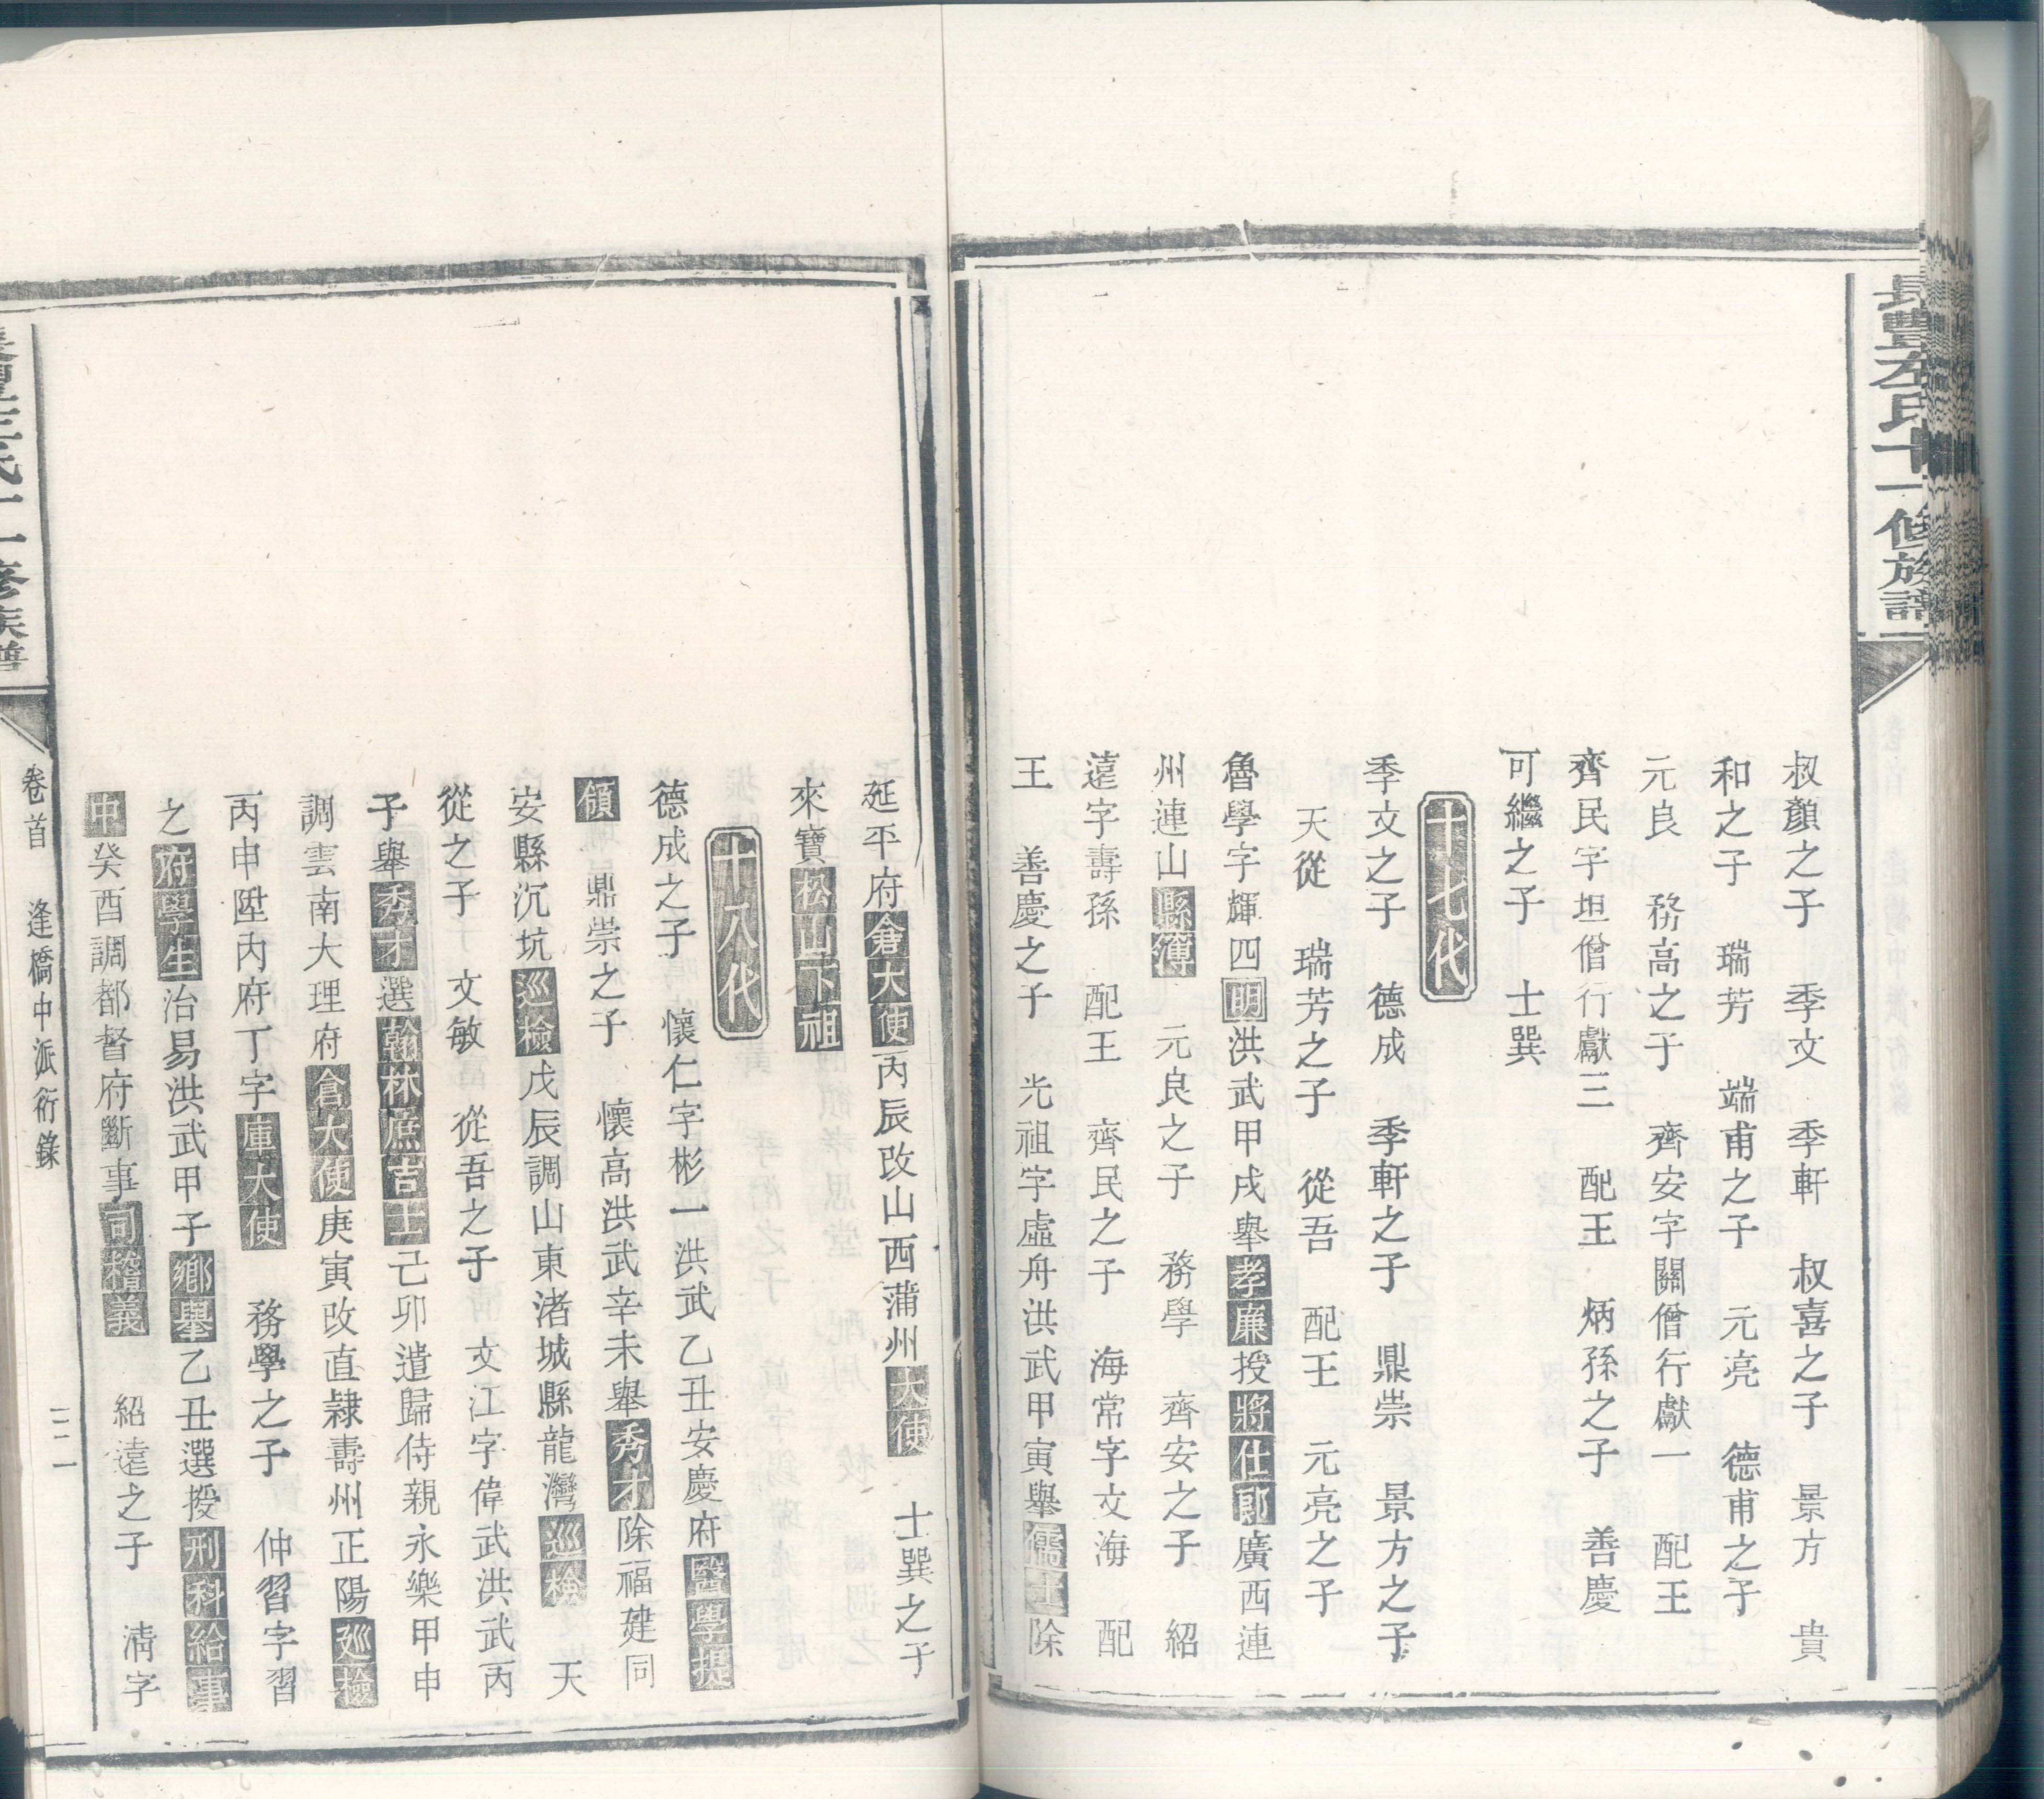 長豐左氏十一修族譜
叔顏之子　季文　季軒　叔喜之子　景方　貴
和之子　瑞芳　端甫之子　元亮　德甫之子
元良　務高之子　齊安字關僧行獻一　配王
齊民字坦僧行獻三　配王　炳孫之子　善慶
可繼之子　士巽
十七代
季文之子　德成　季軒之子　鼎崇　景方之子
天從　瑞芳之子　從吾　配王　元亮之子
魯學字輝四明洪武甲戌舉孝廉授將仕郎廣西連
州連山縣簿　元良之子　務學　齊安之子　紹
遠字壽孫　配王　齊民之子　海常字文海　配
王　善慶之子　光祖字虛舟洪武甲寅舉儒士除
延平府倉大使丙辰改山西蒲州大使　士巽之子
來寶松山下祖
十八代
德成之子　懷仁字彬一洪武乙丑安慶府醫學提
領　鼎崇之子　懷高洪武辛未舉秀才除福建同
安縣沉坑巡檢戊辰調山東渚城縣龍灣巡檢　天
從之子　文敏　從吾之子　文江字偉武洪武丙
子舉秀才選翰林庶吉士己卯遣歸侍親永樂甲申
調雲南大理府倉大使庚寅改直隸壽州正陽巡檢
丙申陞內府丁字庫大使　務學之子　仲習字習
之府學生治易洪武甲子鄉舉乙丑選授刑科給事
中癸酉調都督府斷事司稽義　紹遠之子　清字
卷首　逢橋中派衍錄
氏十一修族譜